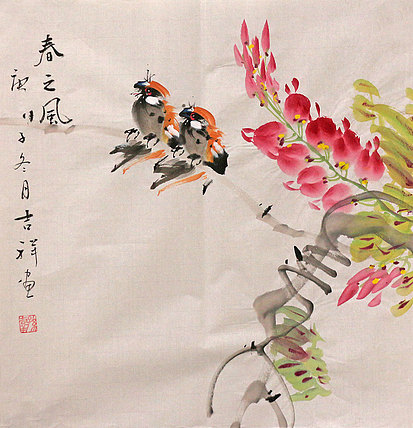 春之風
庚子冬月吉祥画